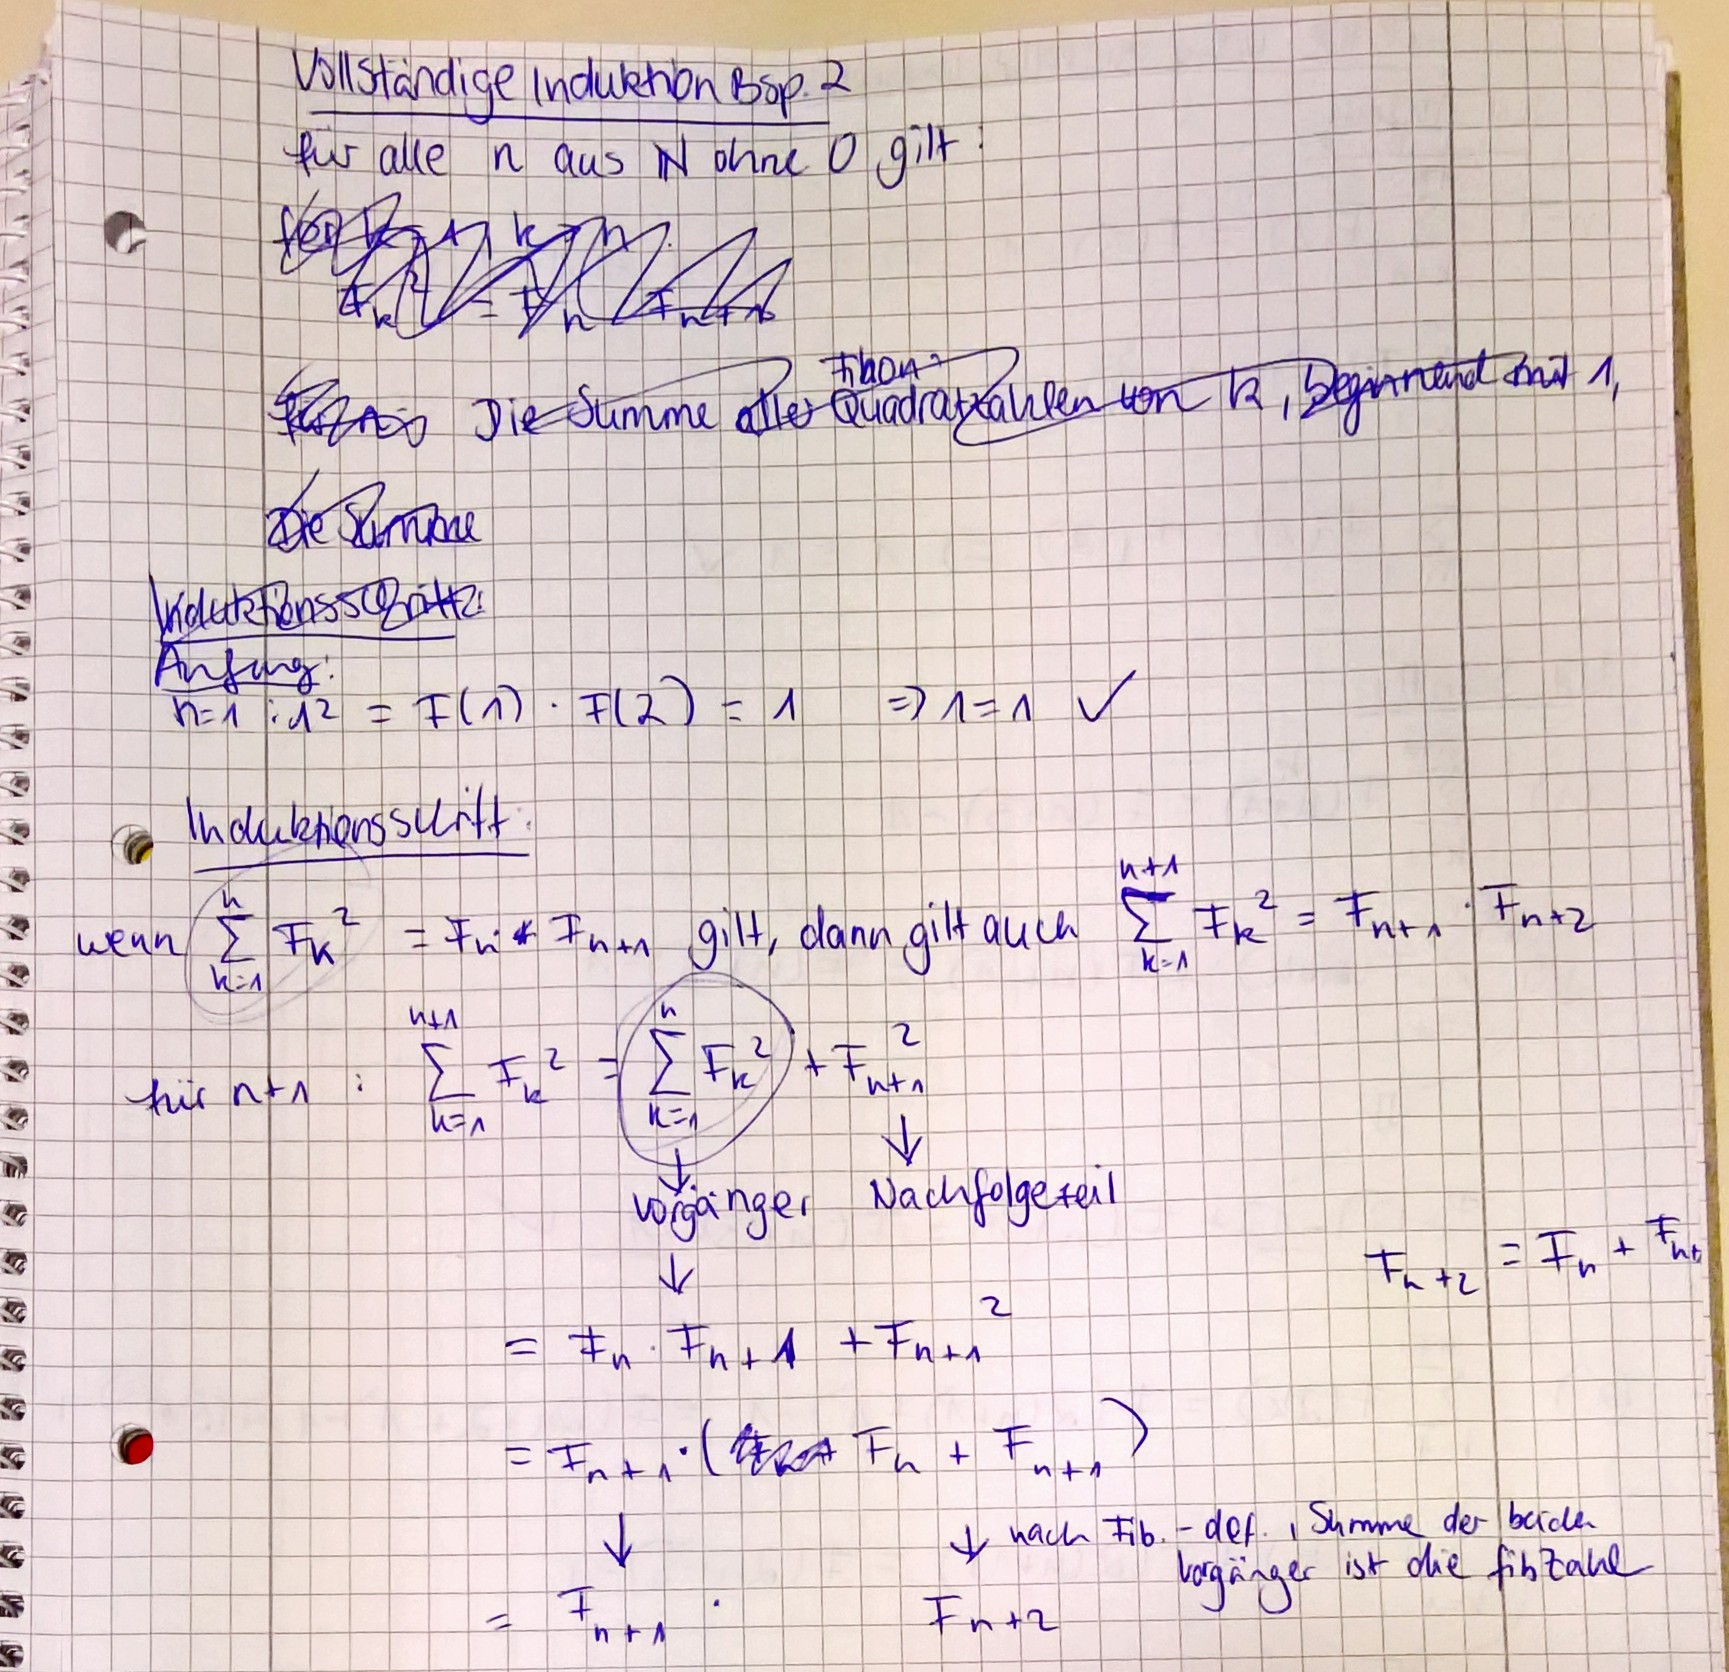 Vollständige Induktion Bsp. 2
für alle n aus ℕ ohne 0 gilt:
Die Summe aller Fibon- Quadratzahlen von k, beginnend mit 1,
Die Summe
Induktionsschritt:
Anfang:
n=1 : 1² = F(1) · F(2) = 1 ⇒ 1=1 ✓
Induktionsschritt:
wenn ∑_{k=1}^{n} F_k² = F_n · F_{n+1} gilt, dann gilt auch ∑_{k=1}^{n+1} F_k² = F_{n+1} · F_{n+2}
für n+1 : ∑_{k=1}^{n+1} F_k² = ∑_{k=1}^{n} F_k² + F_{n+1}²
↓ ↓
Vorgänger Nachfolgeteil
↓
F_{n+2} = F_n + F_{n+
= F_n · F_{n+1} + F_{n+1}²
= F_{n+1} · ( F_n + F_{n+1} )
↓ ↓ nach Fib.-def., Summe der beiden
Vorgänger ist die fibZahl
= F_{n+1} · F_{n+2}